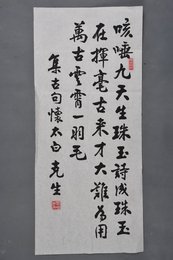 咳唾九天生珠玉詩成珠玉
在揮毫古来才大難為用
萬古雲霄一羽毛
集古句懷太白 克生